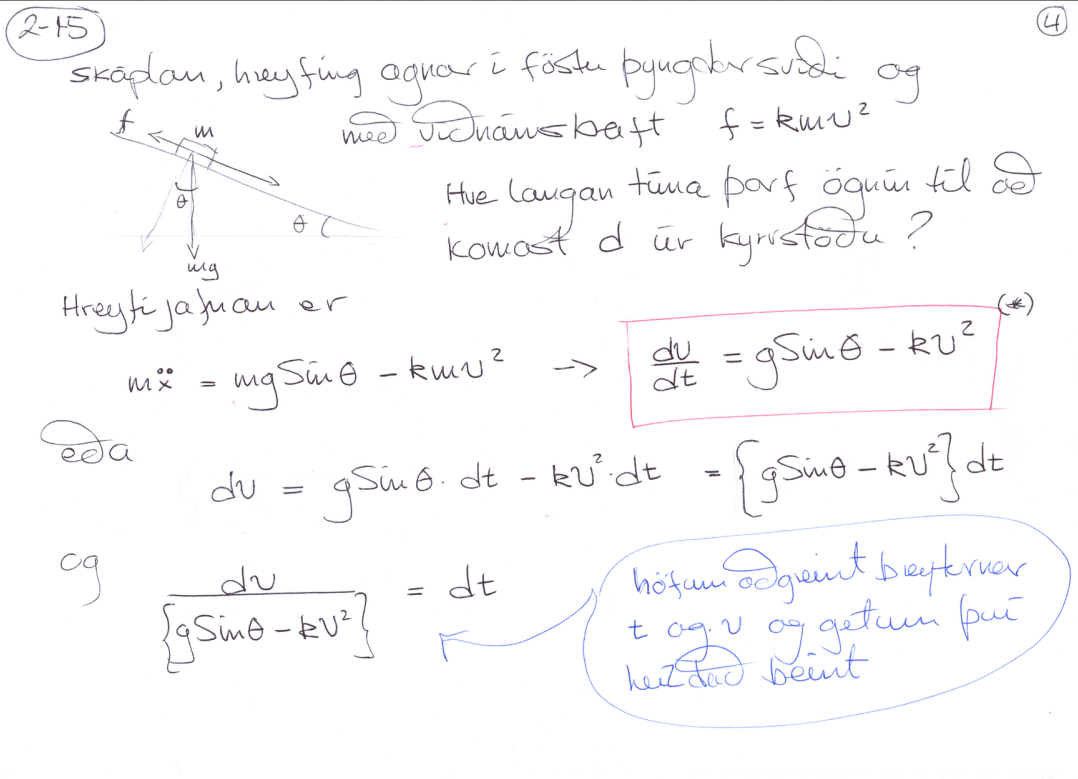 2-15
4
skáplan, hreyfing agnar í föstu þyngdarsviði og
með viðnámskraft f = kmv²
f
m
θ
θ
mg
Hve langan tíma þarf ögnin til að
komast d úr kyrrstöðu ?
Hreyfijafnan er
mẍ = mg Sin θ - kmv² → dv/dt = g Sin θ - kv² (*)
eða
dv = g Sin θ · dt - kv² · dt = {g Sin θ - kv²} dt
og
dv/{g Sin θ - kv²} = dt
höfum aðgreint breyturnar
t og v og getum því
heildað beint